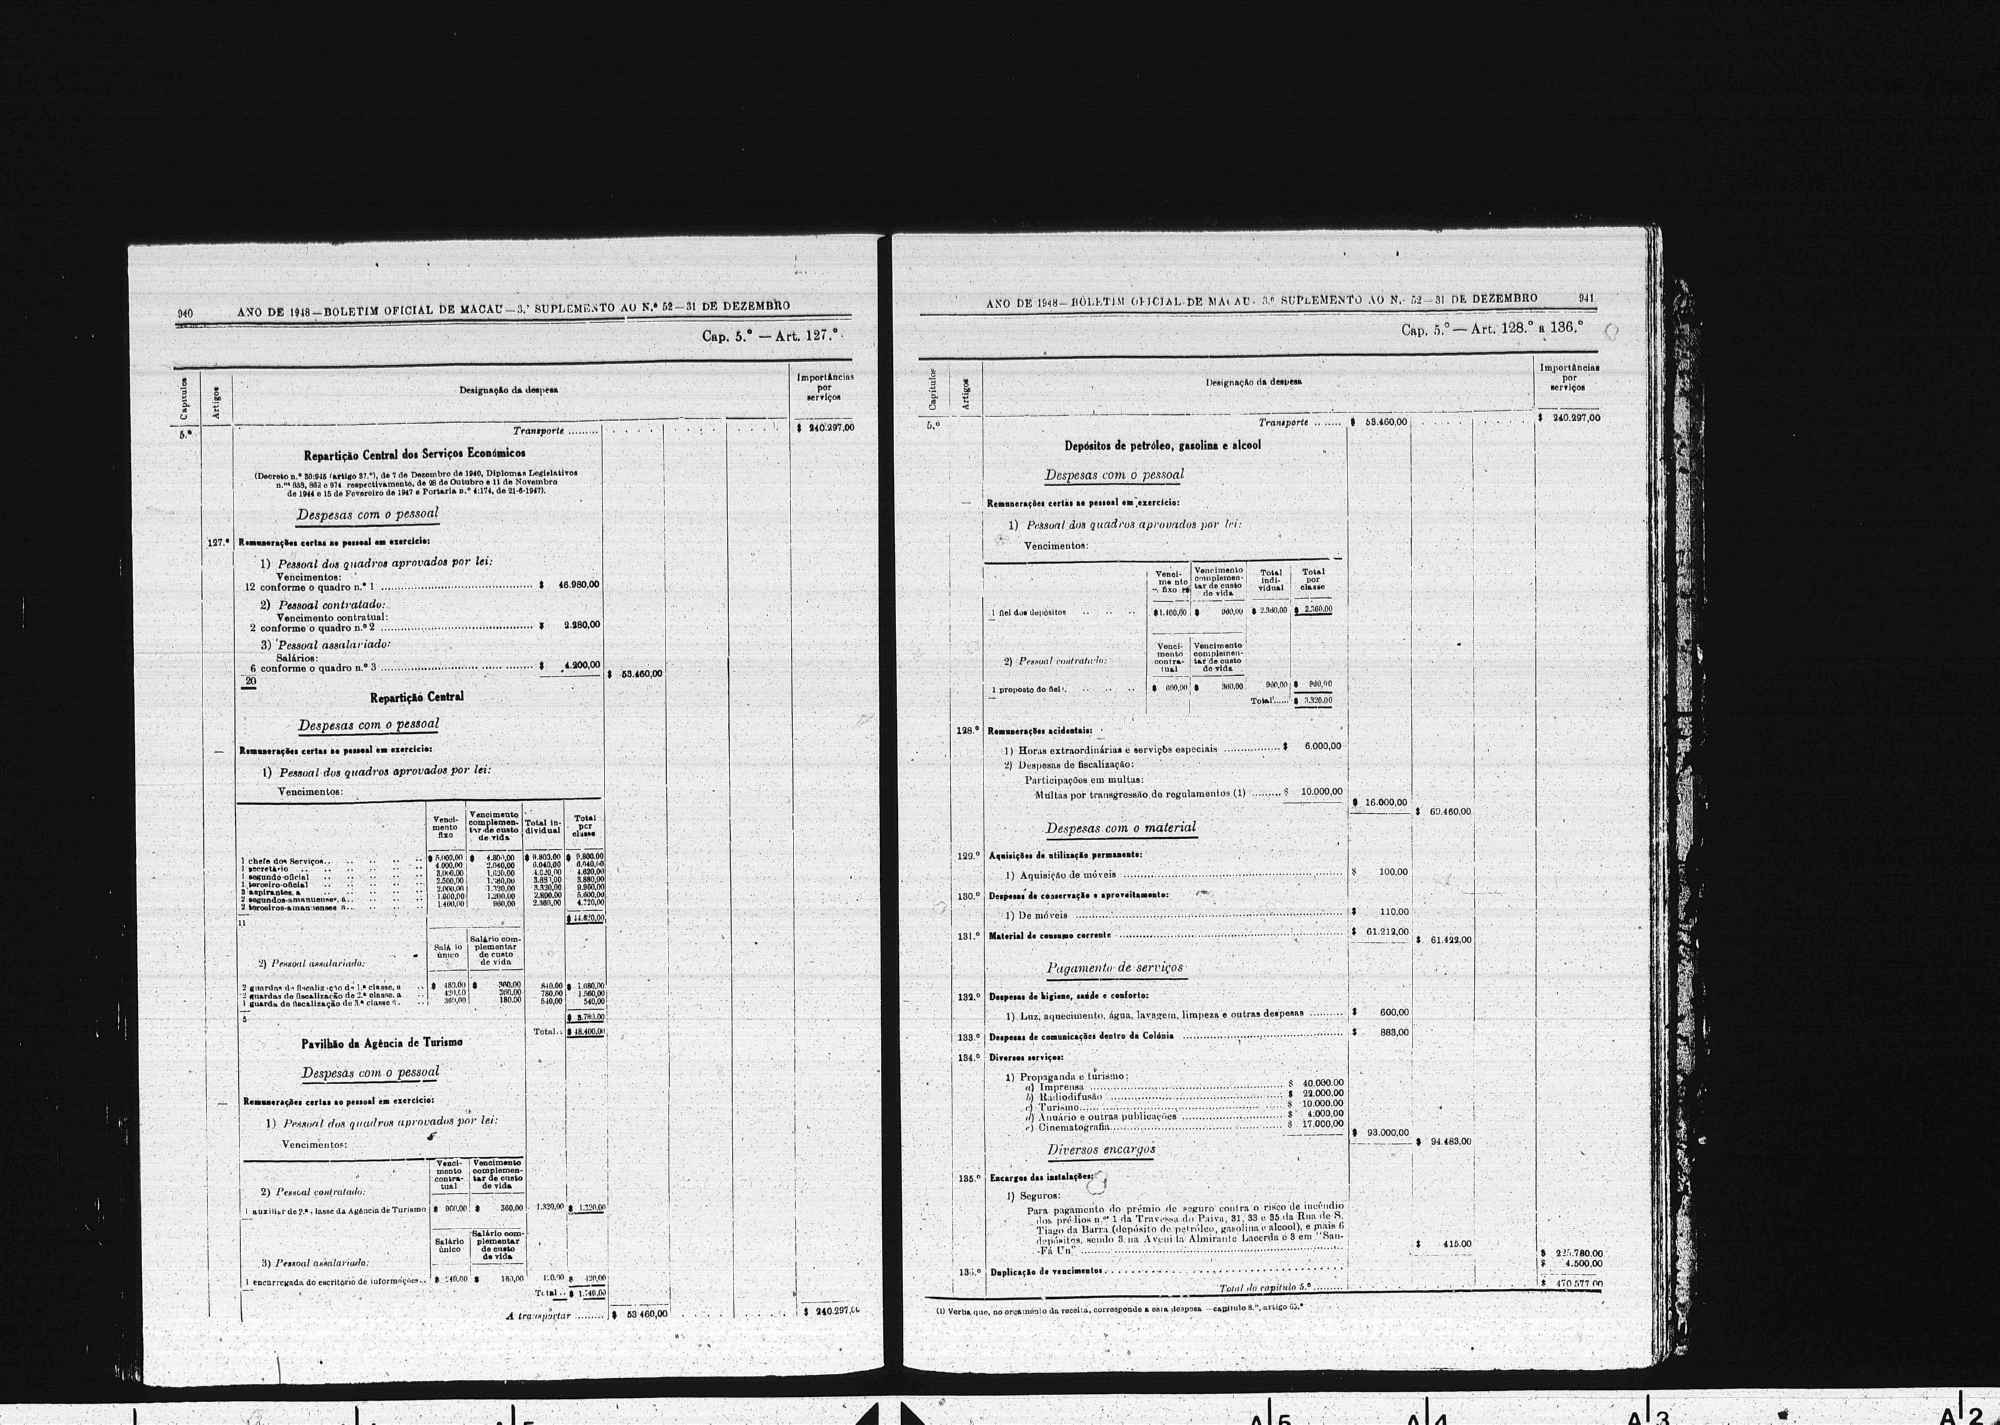 940 ANO DE 1948—BOLETIM OFICIAL DE MACAU—3.º SUPLEMENTO AO N.º 52—31 DE DEZEMBRO
Cap. 5.º — Art. 127.º
Capítulos
Artigos
Designação da despesa
Importâncias por serviços
5.º
Transporte ......... $ 240.297,00
Repartição Central dos Serviços Económicos
(Decreto n.º 30:945 (artigo 37.º), de 7 de Dezembro de 1940, Diplomas Legislativos
respectivamente, de 28 de Outubro e 11 de Novembro
de 1944 e 15 de Fevereiro de 1947 e Portaria n.º 4:174, de 21-6-1947).
Despesas com o pessoal
127.º Remunerações certas ao pessoal em exercício:
1) Pessoal dos quadros aprovados por lei:
Vencimentos:
12 conforme o quadro n.º 1 ........ $ 46.980,00
2) Pessoal contratado:
Vencimento contratual:
2 conforme o quadro n.º 2 ........ $ 2.280,00
3) Pessoal assalariado:
Salários:
6 conforme o quadro n.º 3 ........ $ 4.200,00
20 $ 53.460,00
Repartição Central
Despesas com o pessoal
— Remunerações certas ao pessoal em exercício:
1) Pessoal dos quadros aprovados por lei:
Vencimentos:
Vencimento fixo
Vencimento complementar de custo de vida
Total individual
Total por classe
1 chefe dos Serviços.. $ 5.000,00 $ 4.800,00 $ 9.800,00 $ 9.800,00
1 secretário 4.000,00 2.040,00 6.040,00 6.040,00
1 segundo-oficial 3.000,00 1.620,00 4.620,00 4.620,00
1 terceiro-oficial 2.500,00 1.380,00 3.880,00 3.880,00
3 aspirantes, a 2.000,00 1.320,00 3.320,00 9.960,00
2 segundos-amanuenses, a.. 1.600,00 1.200,00 2.800,00 5.600,00
2 terceiros-amanuenses a.. 1.400,00 960,00 2.360,00 4.720,00
11 $ 44.620,00
2) Pessoal assalariado:
Salário único
Salário complementar de custo de vida
2 guardas de fiscalização de 1.ª classe, a $ 480,00 $ 360,00 840,00 $ 1.680,00
2 guardas de fiscalização de 2.ª classe, a 420,00 360,00 780,00 1.560,00
1 guarda de fiscalização de 3.ª classe 360,00 180,00 540,00 540,00
5 $ 3.780,00
Total.. $ 48.400,00
Pavilhão da Agência de Turismo
Despesas com o pessoal
— Remunerações certas ao pessoal em exercício:
1) Pessoal dos quadros aprovados por lei:
Vencimentos:
Vencimento contratual
Vencimento complementar de custo de vida
2) Pessoal contratado:
1 auxiliar de 2.ª classe da Agência de Turismo $ 960,00 $ 360,00 1.320,00 $ 1.320,00
Salário único
Salário complementar de custo de vida
3) Pessoal assalariado:
1 encarregada do escritório de informações.. $ 240,00 $ 180,00 420,00 $ 420,00
Total .. $ 1.740,00
A transportar ......... $ 53.460,00 $ 240.297,00
ANO DE 1948—BOLETIM OFICIAL DE MACAU—3.º SUPLEMENTO AO N.º 52—31 DE DEZEMBRO 941
Cap. 5.º — Art. 128.º a 136.º
Capítulos
Artigos
Designação da despesa
Importâncias por serviços
5.º
Transporte ....... $ 53.460,00 $ 240.297,00
Depósitos de petróleo, gasolina e alcool
Despesas com o pessoal
— Remunerações certas ao pessoal em exercício:
1) Pessoal dos quadros aprovados por lei:
Vencimentos:
Vencimento fixo
Vencimento complementar de custo de vida
Total individual
Total por classe
1 fiel dos depósitos $ 1.400,00 $ 960,00 $ 2.360,00 $ 2.360,00
Vencimento contratual
Vencimento complementar de custo de vida
2) Pessoal contratado:
1 proposto do fiel $ 600,00 $ 360,00 960,00 $ 960,00
Total ...... $ 3.320,00
128.º Remunerações acidentais:
1) Horas extraordinárias e serviços especiais ........ $ 6.000,00
2) Despesas de fiscalização:
Participações em multas:
Multas por transgressão de regulamentos (1) ........ $ 10.000,00
$ 16.000,00
$ 69.460,00
Despesas com o material
129.º Aquisições de utilização permanente:
1) Aquisição de móveis ........ $ 100,00
130.º Despesas de conservação e aproveitamento:
1) De móveis ........ $ 110,00
131.º Material de consumo corrente ........ $ 61.212,00
$ 61.422,00
Pagamento de serviços
132.º Despesas de higiene, saúde e conforto:
1) Luz, aquecimento, água, lavagem, limpeza e outras despesas ........ $ 600,00
133.º Despesas de comunicações dentro da Colónia ........ $ 883,00
134.º Diversos serviços:
1) Propaganda e turismo:
a) Imprensa ........ $ 40.000,00
b) Radiodifusão ........ $ 22.000,00
c) Turismo ........ $ 10.000,00
d) Anuário e outras publicações ........ $ 4.000,00
e) Cinematografia ........ $ 17.000,00
$ 93.000,00
$ 94.483,00
Diversos encargos
135.º Encargos das instalações:
1) Seguros:
Para pagamento do prémio de seguro contra o risco de incêndio
dos prédios n.ºs 1 da Travessa do Paiva, 31, 33 e 35 da Rua de S.
Tiago da Barra (depósito de petróleo, gasolina e alcool), e mais 6
depósitos, sendo 3 na Avenida Almirante Lacerda e 3 em "San-
-Fá Un" ........ $ 415,00
$ 225.780,00
136.º Duplicação de vencimentos ........ $ 4.500,00
Total do capítulo 5.º ......... $ 470.577,00
(1) Verba que, no orçamento da receita, corresponde a esta despesa—capítulo 8.º, artigo 65.º
A 5
A 4
A 3
A 2